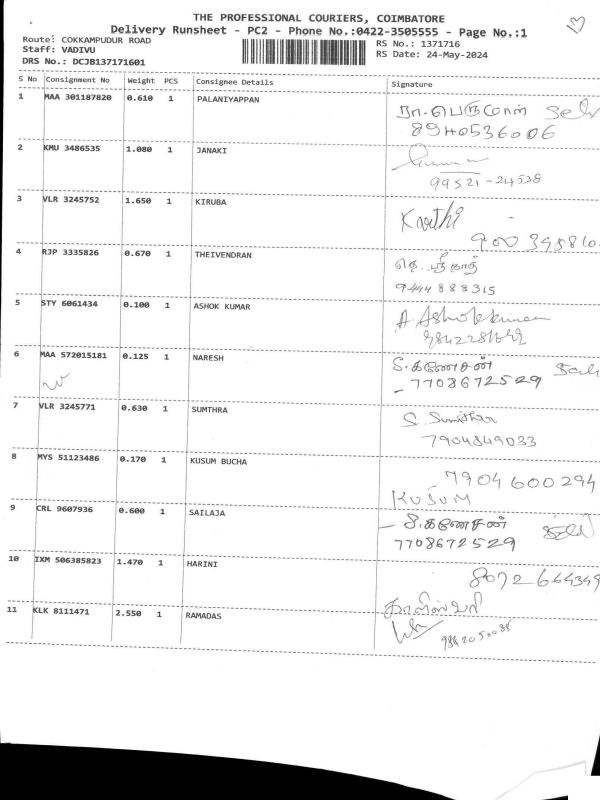 THE PROFESSIONAL COURIERS, COIMBATORE
Delivery Runsheet - PC2 - Phone No.:0422-3505555 - Page No.:1
Route: COKKAMPUDUR ROAD RS No.: 1371716
Staff: VADIVU RS Date: 24-May-2024
DRS No.: DCJB137171601
S No Consignment No Weight PCS Consignee Details Signature
1 MAA 301187820 0.610 1 PALANIYAPPAN ரா.பெருமாள்
8940536006
2 KMU 3486535 1.080 1 JANAKI
99521-24538
3 VLR 3245752 1.650 1 KIRUBA Karthi
4 RJP 3335826 0.670 1 THEIVENDRAN
9444888315
5 STY 6061434 0.100 1 ASHOK KUMAR A Ashokkumar
6 MAA 572015181 0.125 1 NARESH S.கணேசன்
7708672529
7 VLR 3245771 0.630 1 SUMTHRA
7904849033
8 MYS 51123486 0.170 1 KUSUM BUCHA 7904600294
KUSUM
9 CRL 9607936 0.600 1 SAILAJA S.கணேசன்
7708672529
10 IXM 506385823 1.470 1 HARINI 8072664349
காளீஸ்வரி
11 KLK 8111471 2.550 1 RAMADAS